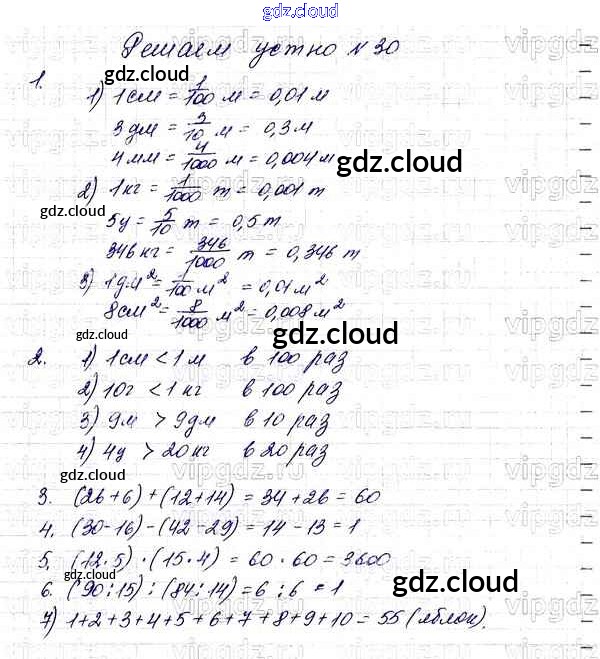 gdz.cloud
Решаем устно № 30
1. 1) 1 см = 1/100 м = 0,01 м
3 дм = 3/10 м = 0,3 м
4 мм = 4/1000 м = 0,004 м
2) 1 кг = 1/1000 т = 0,001 т
5 ц = 5/10 т = 0,5 т
346 кг = 346/1000 т = 0,346 т
3) 1 дм² = 1/100 м² = 0,01 м²
8 см² = 8/1000 м² = 0,008 м²
2. 1) 1 см < 1 м в 100 раз
2) 10 г < 1 кг в 100 раз
3) 9 м > 9 дм в 10 раз
4) 4 ц > 20 кг в 20 раз
3. (26 + 6) + (12 + 14) = 34 + 26 = 60
4. (30 - 16) - (42 - 29) = 14 - 13 = 1
5. (12 · 5) · (15 · 4) = 60 · 60 = 3600
6. (90 : 15) : (84 : 14) = 6 : 6 = 1
7) 1+2+3+4+5+6+7+8+9+10 = 55 (яблок).